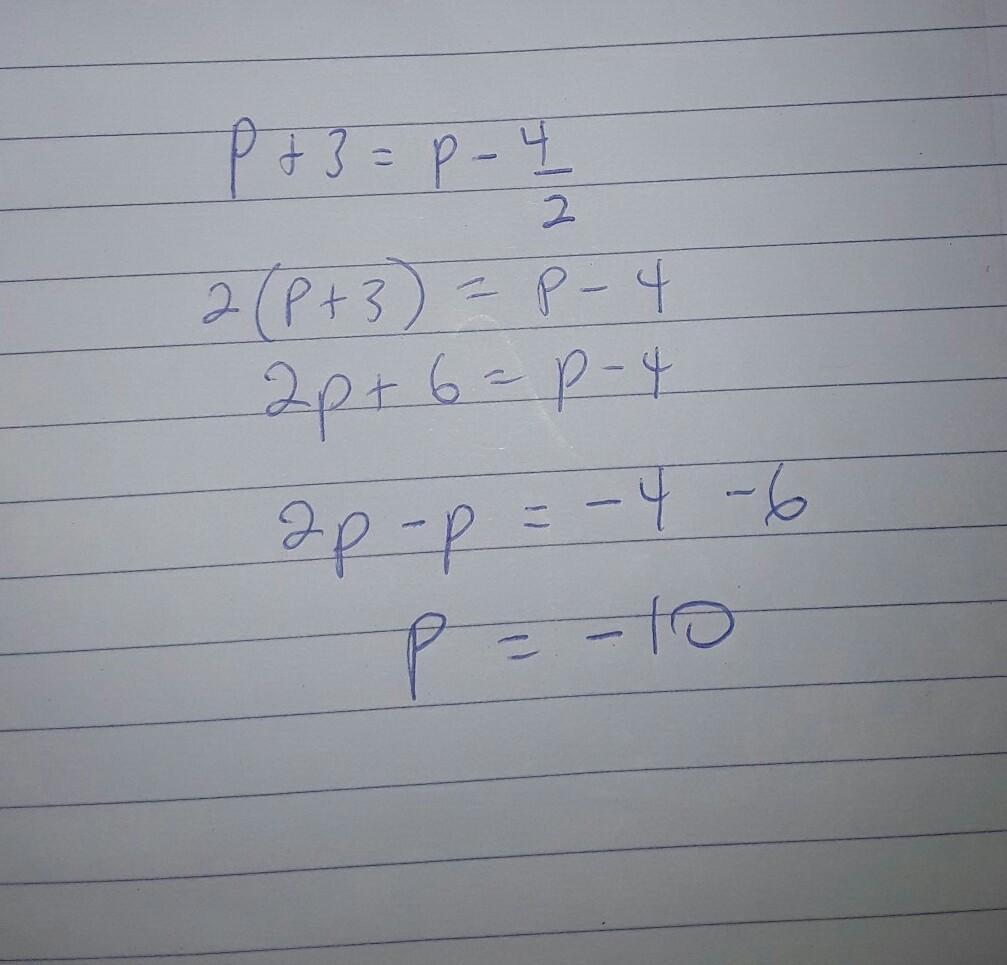 p + 3 = p - 4/2
2(p+3) = p - 4
2p + 6 = p - 4
2p - p = -4 -6
p = -10